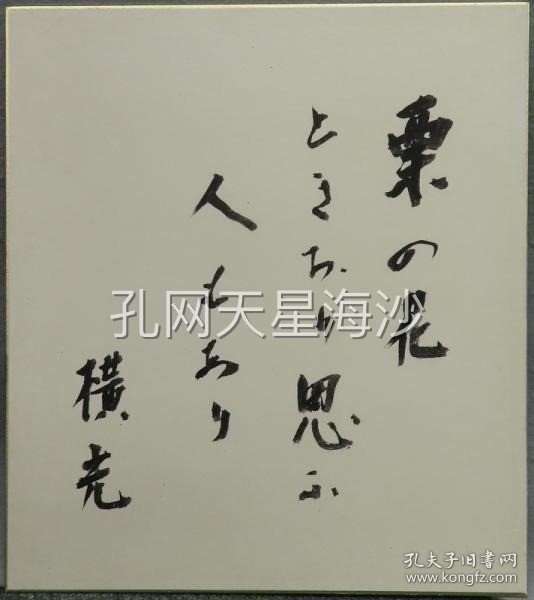 栗の花
ときおり思ふ
人もあり
横光
孔网天星海沙
孔夫子旧书网
www.kongfz.com